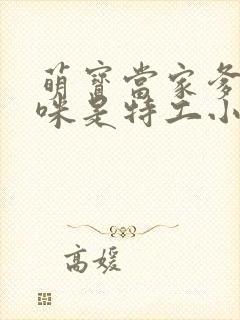 萌寶當家爹
咪是特工小
高媛